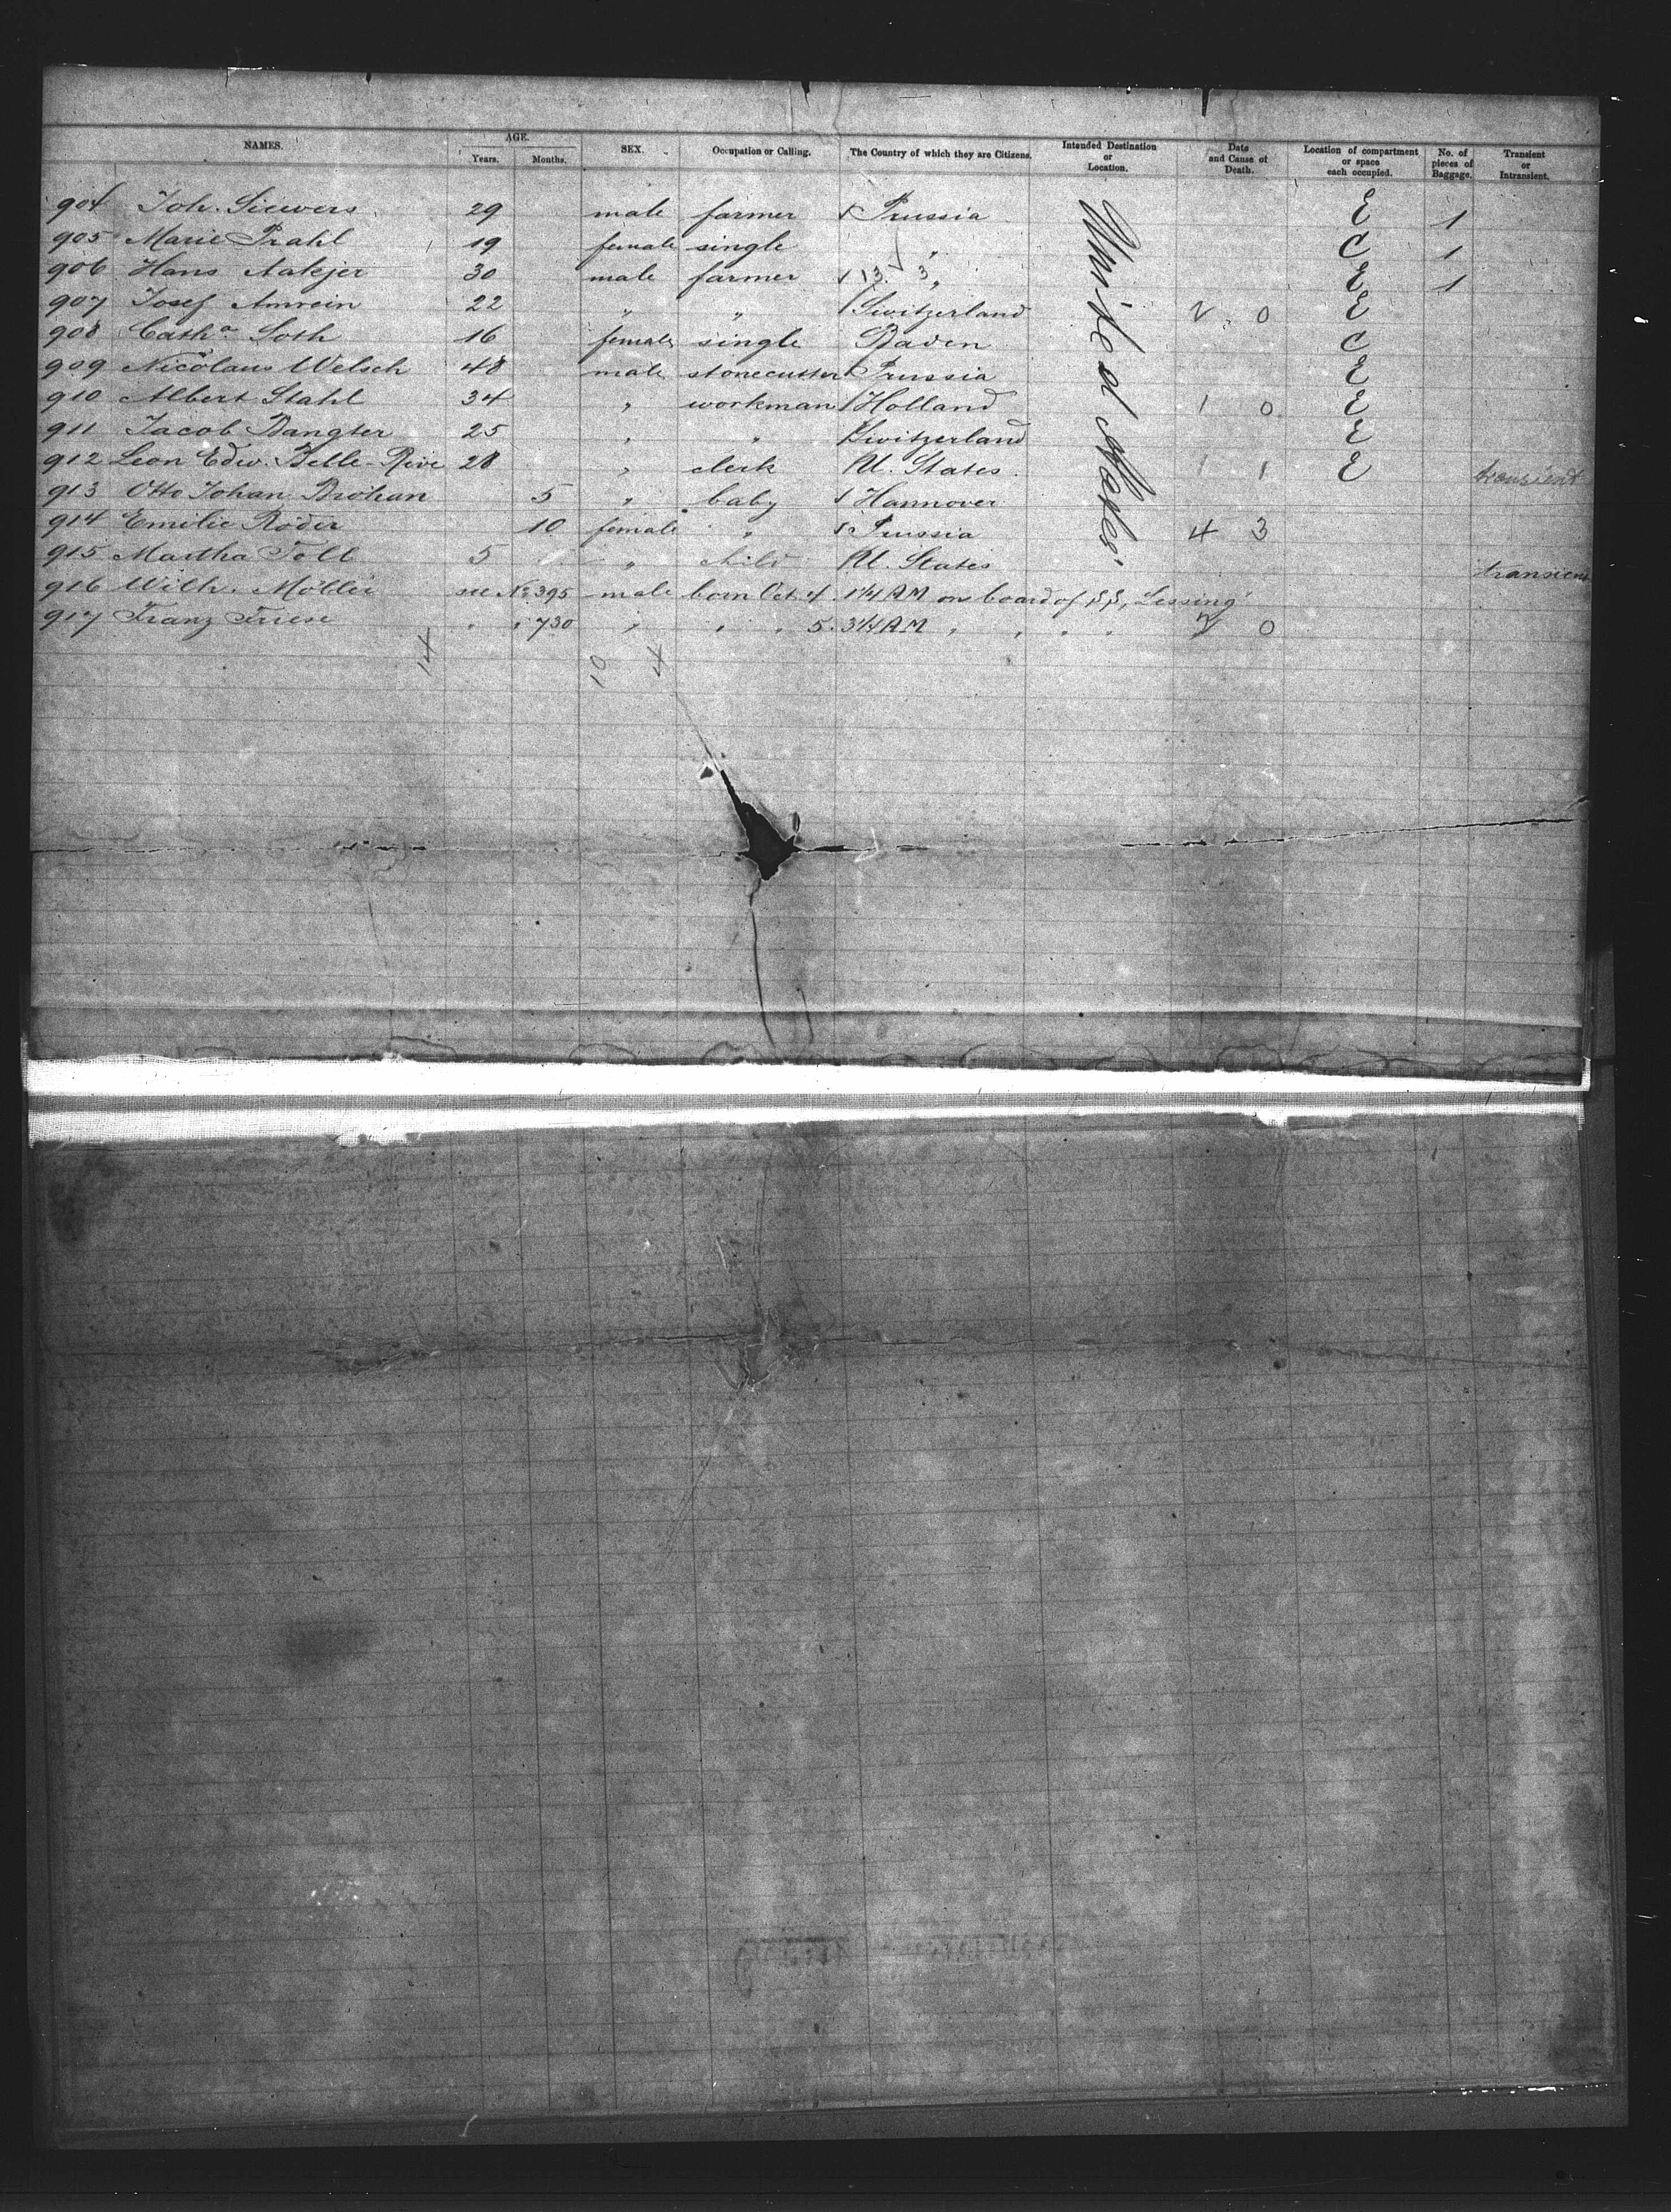 NAMES. AGE. Years. Months. SEX. Occupation or Calling. The Country of which they are Citizens. Intended Destination or Location. Date and Cause of Death. Location of compartment or space each occupied. No. of pieces of Baggage. Transient or Intransient.
904 Joh. Siewers 29 male farmer Prussia E 1
905 Marie Prahl 19 female single " C 1
906 Hans Aakjer 30 male farmer 13. 3 " E 1
907 Josef Amrein 22 " " Switzerland 2 0 E
908 Cath.a Soth 16 female single Baden C
909 Nicolaus Welsch 48 male stonecutter Prussia E
910 Albert Stahl 34 " workman Holland 1 0 E
911 Jacob Bangter 25 " " Switzerland E
912 Leon Edw. Belle-Rive 28 " clerk U. States. 1 1 E transient
913 Otto Johan Brohan 5 " baby Hannover
914 Emilie Röder 10 female " Prussia 4 3
915 Martha Toll 5 " child U. States transient
916 Wilh. Möller see No 395 male born Oct. 4. 1 1/4 AM on board of S.S. "Lessing"
917 Franz Friese " " 730 " " " 5. 3 1/4 AM " " " " 0
United States
14 10 4